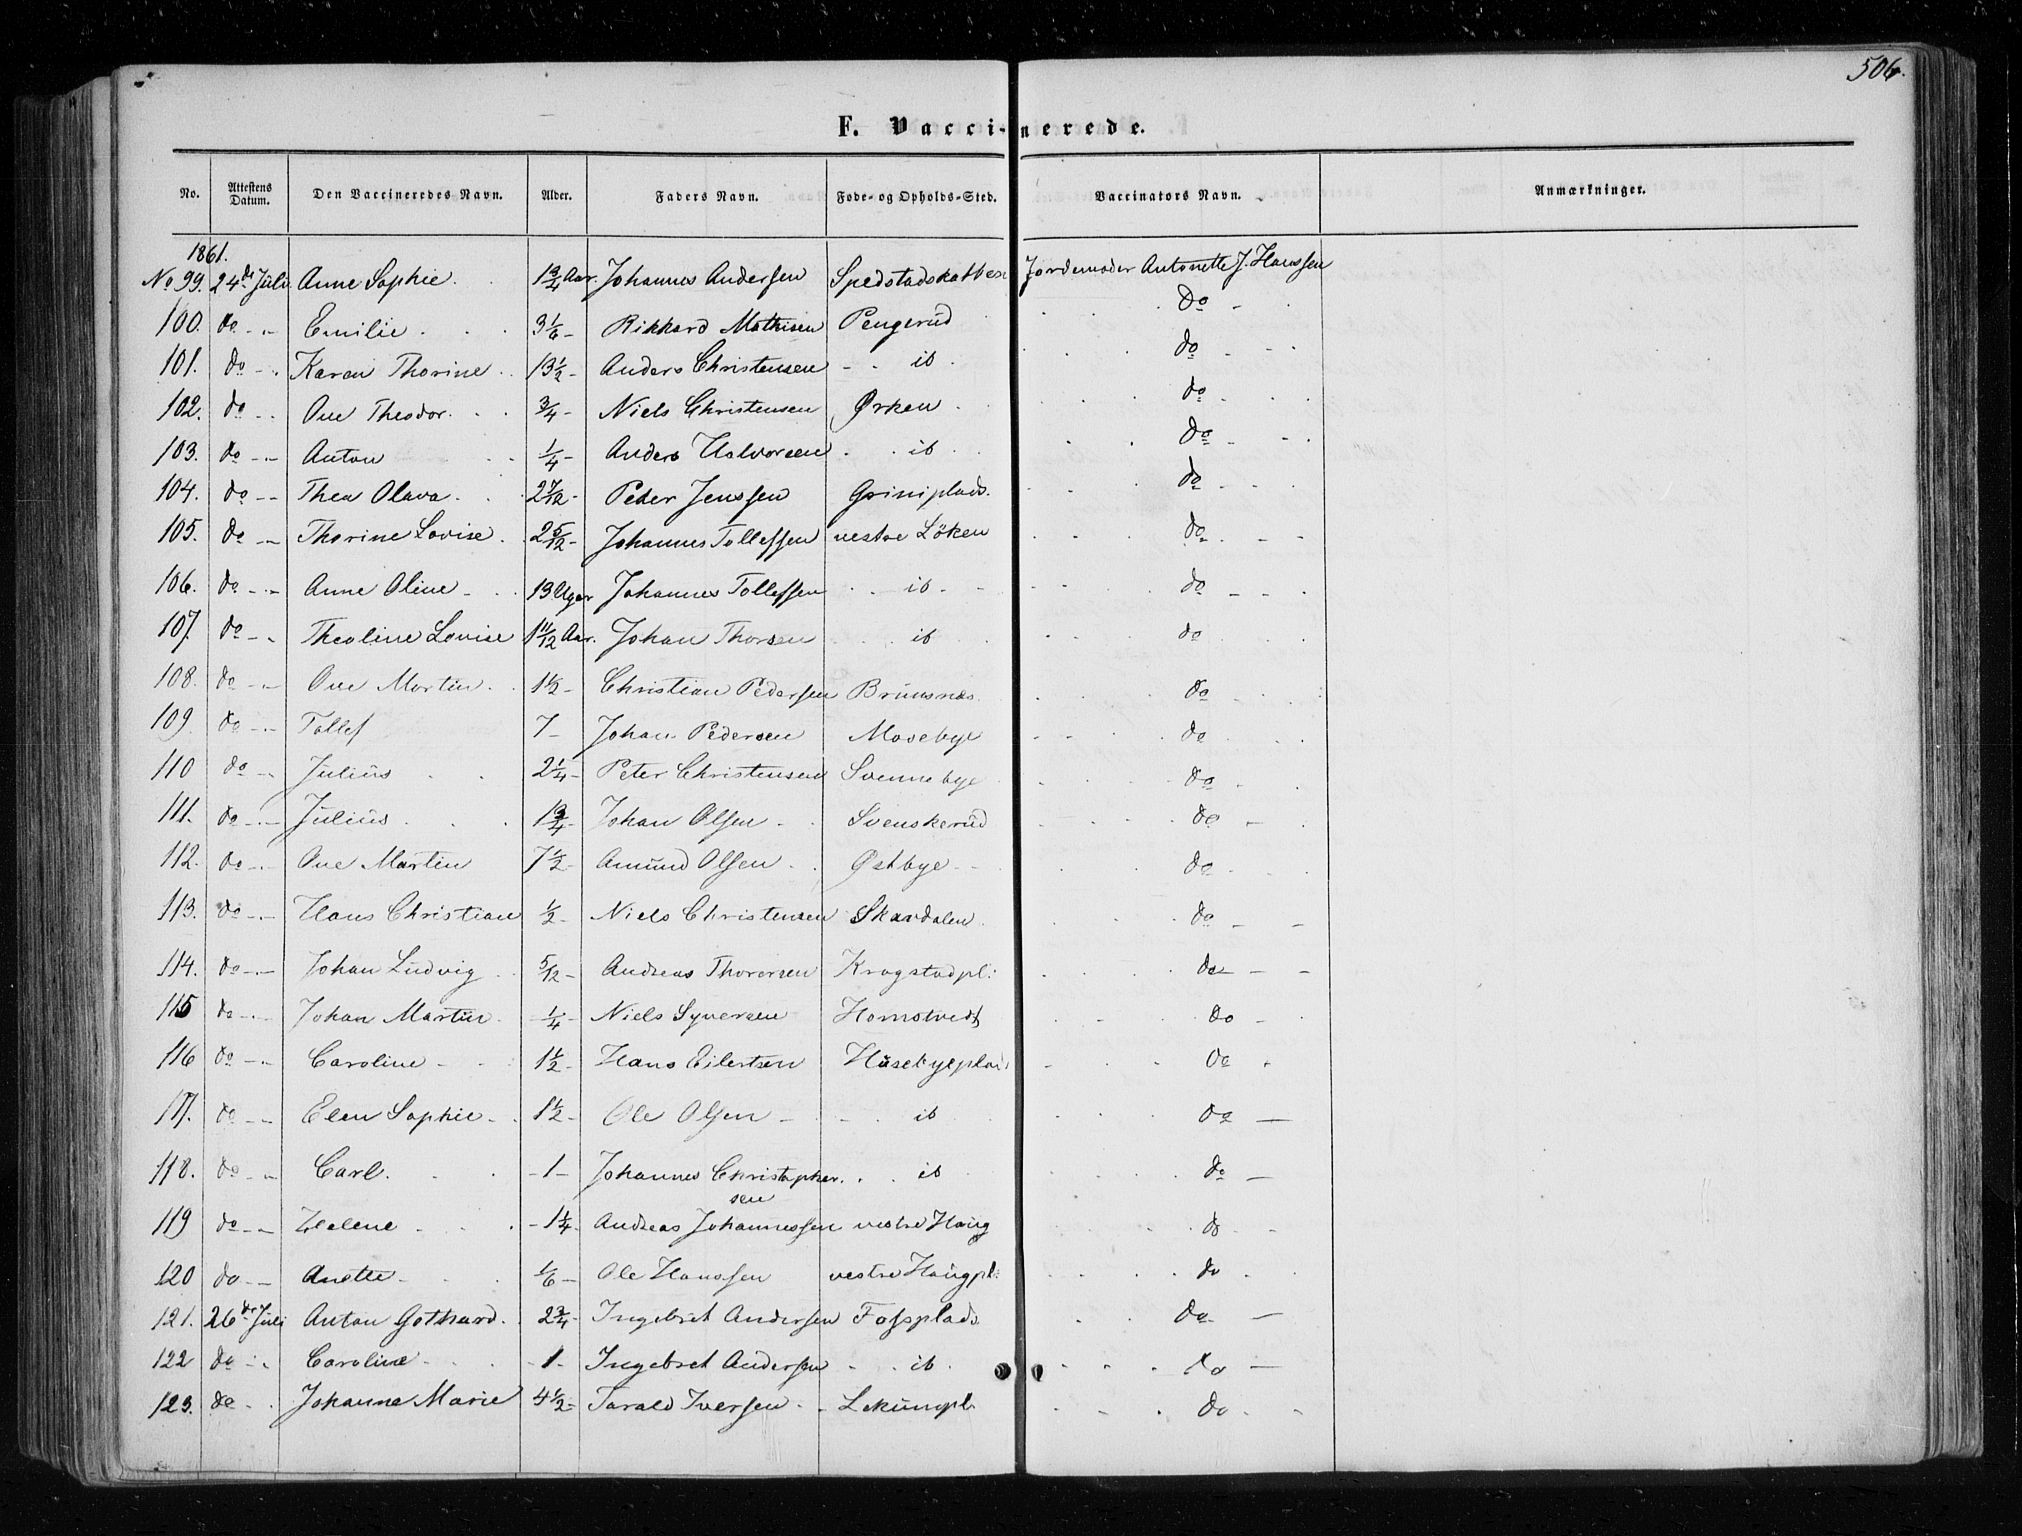 506.
F. Vacci-nerede.
No. Attestens Datum. Den Vaccineredes Navn. Alder. Faders Navn. Føde- og Opholds-Sted. Vaccinators Navn. Anmærkninger.
1861.
No 99. 24de Juli Anne Sophie. 1 3/4 Aar. Johannes Andersen Jordemoder Antonette J. Hanssen
100. do Emilie 3 1/6 - Rikkard Mathisen Pengerud do
101. do Karen Thorine 13 1/2 - Anders Christensen ib. do
102. do Ove Theodor. 3/4 - Niels Christensen Ørken do
103. do Anton 1/4 - Anders Halvorsen ib do
104. do Thea Olava. 2 7/12 - Peder Jenssen Griniplads. do
105. do Thorine Lovise 2 5/12 - Johannes Tollefsen vestre Löken do
106. do Anne Oline 13 Uger Johannes Tollefsen ib. do
107. do Theoline Lovise 1 11/12 Aar. Johan Thorsen ib do
108. do Ove Martin. 1 1/2 - Christian Pedersen Brunsnæs do
109. do Tollef 7 - Johan Pedersen Mosebye do
110 do Julius 2 1/4 - Peter Christensen Svennebye do
111. do Julius. 1 3/4 - Johan Olsen Svenskerud do
112. do Ove Martin 7 1/2 - Amund Olsen Østbye do
113. do Hans Christian 1/2 - Niels Christensen Skardalen do
114. do Johan Ludvig 5/12 - Andreas Thorersen Krogstadpl: do
115 do Johan Martin 1/4 - Niels Syversen Homstvedt do
116 do Caroline 1 1/2 - Hans Eilertsen Husebyeplads do
117. do Elen Sophie 1 1/2 - Ole Olsen ib do
118. do Carl. - 1 - Johannes Christophersen ib do
119 do Helene - 1 1/4 - Andreas Johannessen vestre Haug do
120 do Anette 1/6 - Ole Hanssen vestre Haugpl: do
121. 26de Juli Anton Gothard. 2 3/4 - Ingebret Andersen Fossplads do
122 do Caroline - 1 - Ingebret Andersen ib. do
123. do Johanne Marie 4 1/2 - Tarald Iversen do